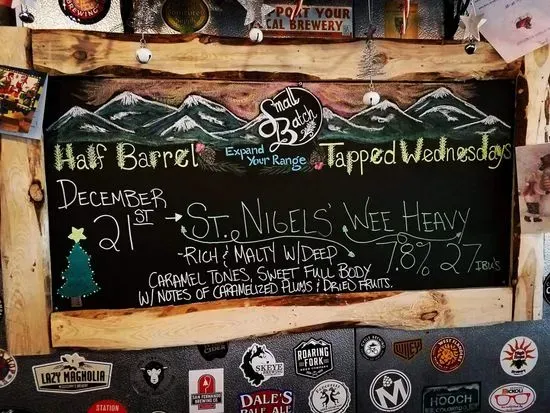 PORT YOUR
CAL BREWERY
Small
Batch
Half Barrel
Expand
Your Range
Tapped Wednesdays
DECEMBER
21ST
ST. NIGELS' WEE HEAVY
-RICH & MALTY W/DEEP
CARAMEL TONES, SWEET FULL BODY
W/ NOTES OF CARAMELIZED PLUMS & DRIED FRUITS.
7.8% 27 IBU'S
LAZY MAGNOLIA
SKEYE
ROARING
FORK
SAN FERNANDO
BREWING CO
STATION
DALE'S
PALE ALE
M
HOOCH